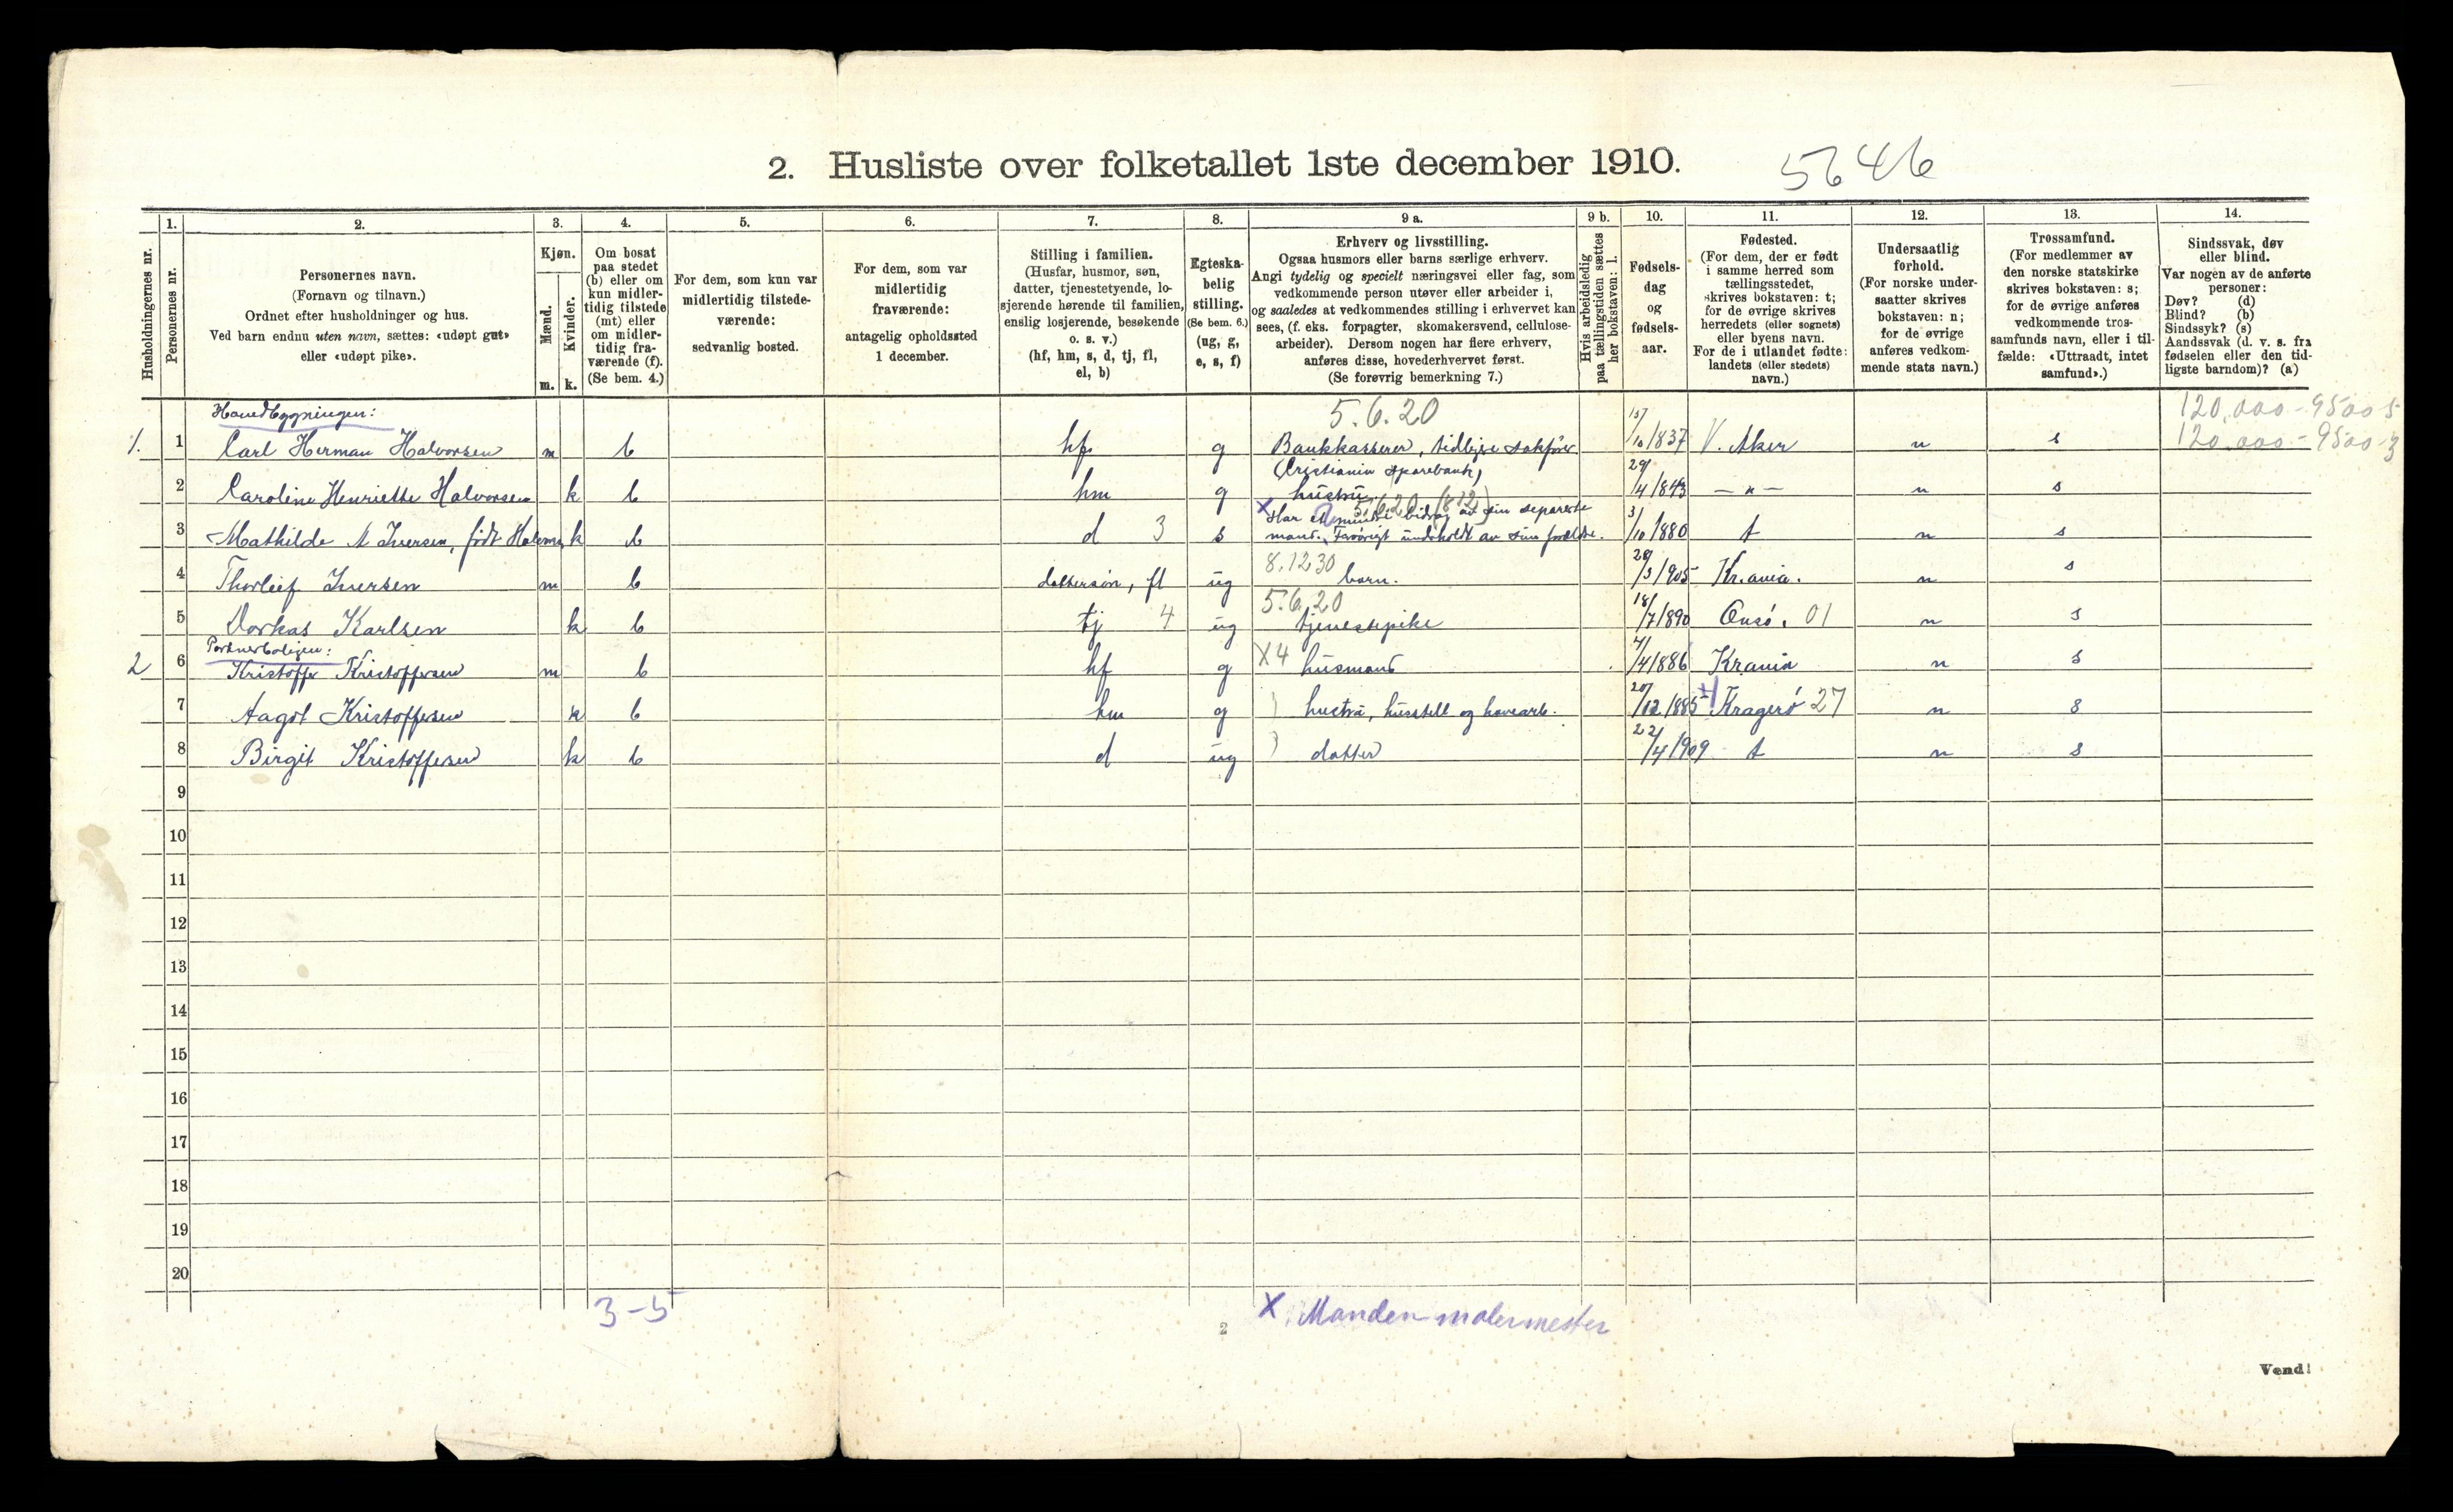 2. Husliste over folketallet 1ste december 1910. 5646
Husholdningernes nr.
1. Personernes nr.
2. Personernes navn.
(Fornavn og tilnavn.)
Ordnet efter husholdninger og hus.
Ved barn endnu uten navn, sættes: «udøpt gut»
eller «udøpt pike».
3. Kjøn.
Mænd. m.
Kvinder. k.
4. Om bosat
paa stedet
(b) eller om
kun midler-
tidig tilstede
(mt) eller
om midler-
tidig fra-
værende (f).
(Se bem. 4.)
5. For dem, som kun var
midlertidig tilstede-
værende:
sedvanlig bosted.
6. For dem, som var
midlertidig
fraværende:
antagelig opholdssted
1 december.
7. Stilling i familien.
(Husfar, husmor, søn,
datter, tjenestetyende, lo-
sjerende hørende til familien,
enslig losjerende, besøkende
o. s. v.)
(hf, hm, s, d, tj, fl,
el, b)
8. Egteska-
belig
stilling.
(Se bem. 6.)
(ug, g,
e, s, f)
9 a. Erhverv og livsstilling.
Ogsaa husmors eller barns særlige erhverv.
Angi tydelig og specielt næringsvei eller fag, som
vedkommende person utøver eller arbeider i,
og saaledes at vedkommendes stilling i erhvervet kan
sees, (f. eks. forpagter, skomakersvend, cellulose-
arbeider). Dersom nogen har flere erhverv,
anføres disse, hovederhvervet først.
(Se forøvrig bemerkning 7.)
9 b. Hvis arbeidsledig
paa tællingstiden sættes
her bokstaven: l.
10. Fødsels-
dag
og
fødsels-
aar.
11. Fødested.
(For dem, der er født
i samme herred som
tællingsstedet,
skrives bokstaven: t;
for de øvrige skrives
herredets (eller sognets)
eller byens navn.
For de i utlandet fødte:
landets (eller stedets)
navn.)
12. Undersaatlig
forhold.
(For norske under-
saatter skrives
bokstaven: n;
for de øvrige
anføres vedkom-
mende stats navn.)
13. Trossamfund.
(For medlemmer av
den norske statskirke
skrives bokstaven: s;
for de øvrige anføres
vedkommende tros-
samfunds navn, eller i til-
fælde: «Uttraadt, intet
samfund».)
14. Sindssvak, døv
eller blind.
Var nogen av de anførte
personer:
Døv? (d)
Blind? (b)
Sindssyk? (s)
Aandssvak (d. v. s. fra
fødselen eller den tid-
ligste barndom)? (a)
Hovedbygningen: 5.6.20 120.000 - 9500 5
1. 1 Carl Herman Halvorsen m b hf g Bankkasserer, tidligere sakfører 15/10 1837 V. Aker n s 120.000 - 9500 - 3
(Cristiania sparebank)
2 Caroline Henriette Halvorsen k b hm g hustru. 29/4 1843 — " — n s
5.6.20 (812)
X Har et mindre bidrag av sin separerte
3 Mathilde M Iversen, født Halvorsen k b d 3 s mand. Forøvrigt underholdt av sine forældre. 3/10 1880 t n s
8.12 30
4 Thorleif Iversen m b dattersøn, fl ug barn. 28/3 1905 Kr.ania. n s
5.6.20
5 Dorkas Karlsen k b tj 4 ug tjenestepike 18/7 1890 Onsø. 01 n s
Portnerboligen:
2 6 Kristoffer Kristoffersen m b hf g X4 husmand 4/4 1886 Krania n s
7 Aagot Kristoffersen k b hm g hustru, husstell og havearb. 20/12 1885 Kragerö 27 n s
8 Birgit Kristoffersen k b d ug datter 22/4 1909 t n s
9
10
11
12
13
14
15
16
17
18
19
20
3-5
X. Manden malermester
2
Vend!